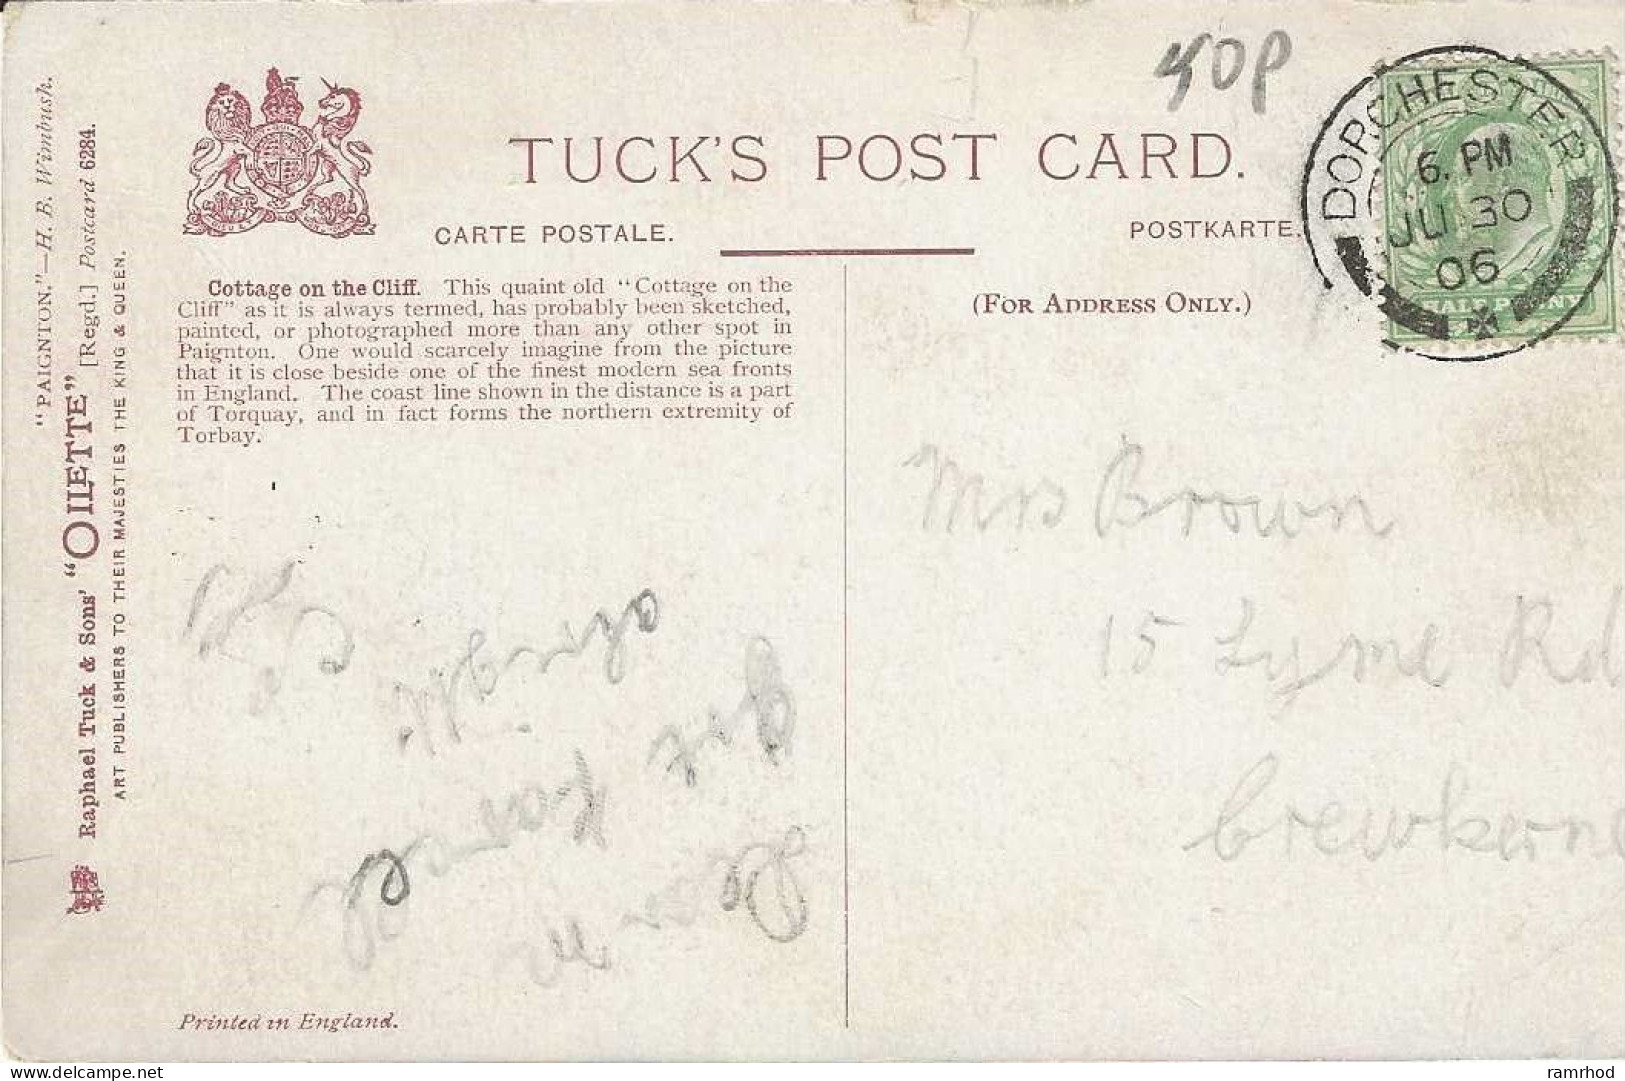 40p
TUCK'S POST CARD.
CARTE POSTALE.
POSTKARTE.
(FOR ADDRESS ONLY.)
DORCHESTER
6. PM
JU 30
06
HALF PENNY
Cottage on the Cliff. This quaint old "Cottage on the
Cliff" as it is always termed, has probably been sketched,
painted, or photographed more than any other spot in
Paignton. One would scarcely imagine from the picture
that it is close beside one of the finest modern sea fronts
in England. The coast line shown in the distance is a part
of Torquay, and in fact forms the northern extremity of
Torbay.
"PAIGNTON."—H. B. Wimbush.
Raphael Tuck & Sons' "OILETTE" [Regd.] Postcard 6284.
ART PUBLISHERS TO THEIR MAJESTIES THE KING & QUEEN.
Dear M
Got home
Mrs Brown
15 Lyme Rd
Crewkerne
Printed in England.
delcampe.net
ramrhod